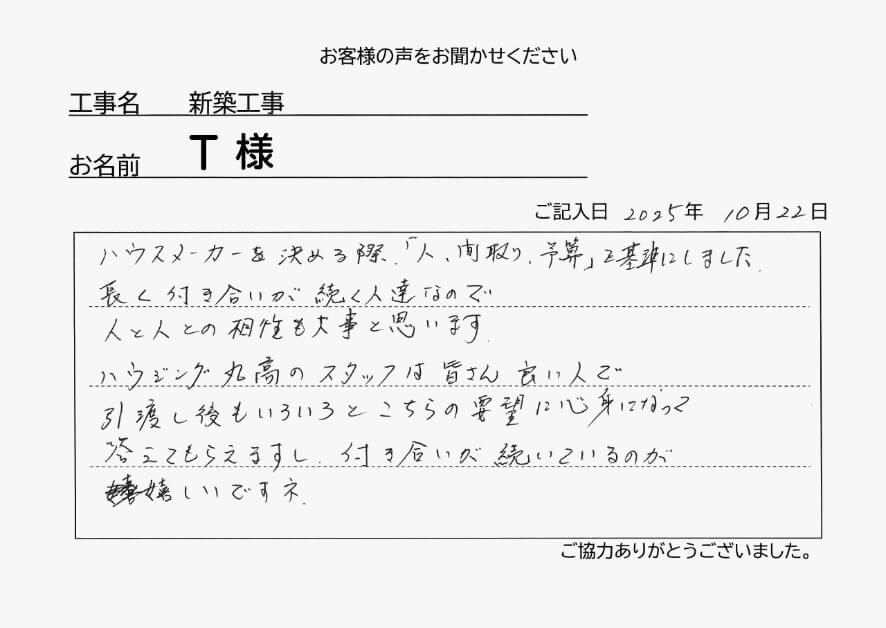 お客様の声をお聞かせください
工事名 新築工事
お名前 T 様
ご記入日 2025年 10月22日
ハウスメーカーを決める際、「人、間取り、予算」を基準にしました。
長く付き合いが続く人達なので
人と人との相性も大事と思います。
ハウジング丸高のスタッフは皆さん良い人で
引渡し後もいろいろとこちらの要望に心身になって
答えてもらえますし、付き合いが続いているのが
嬉しいですネ。
ご協力ありがとうございました。